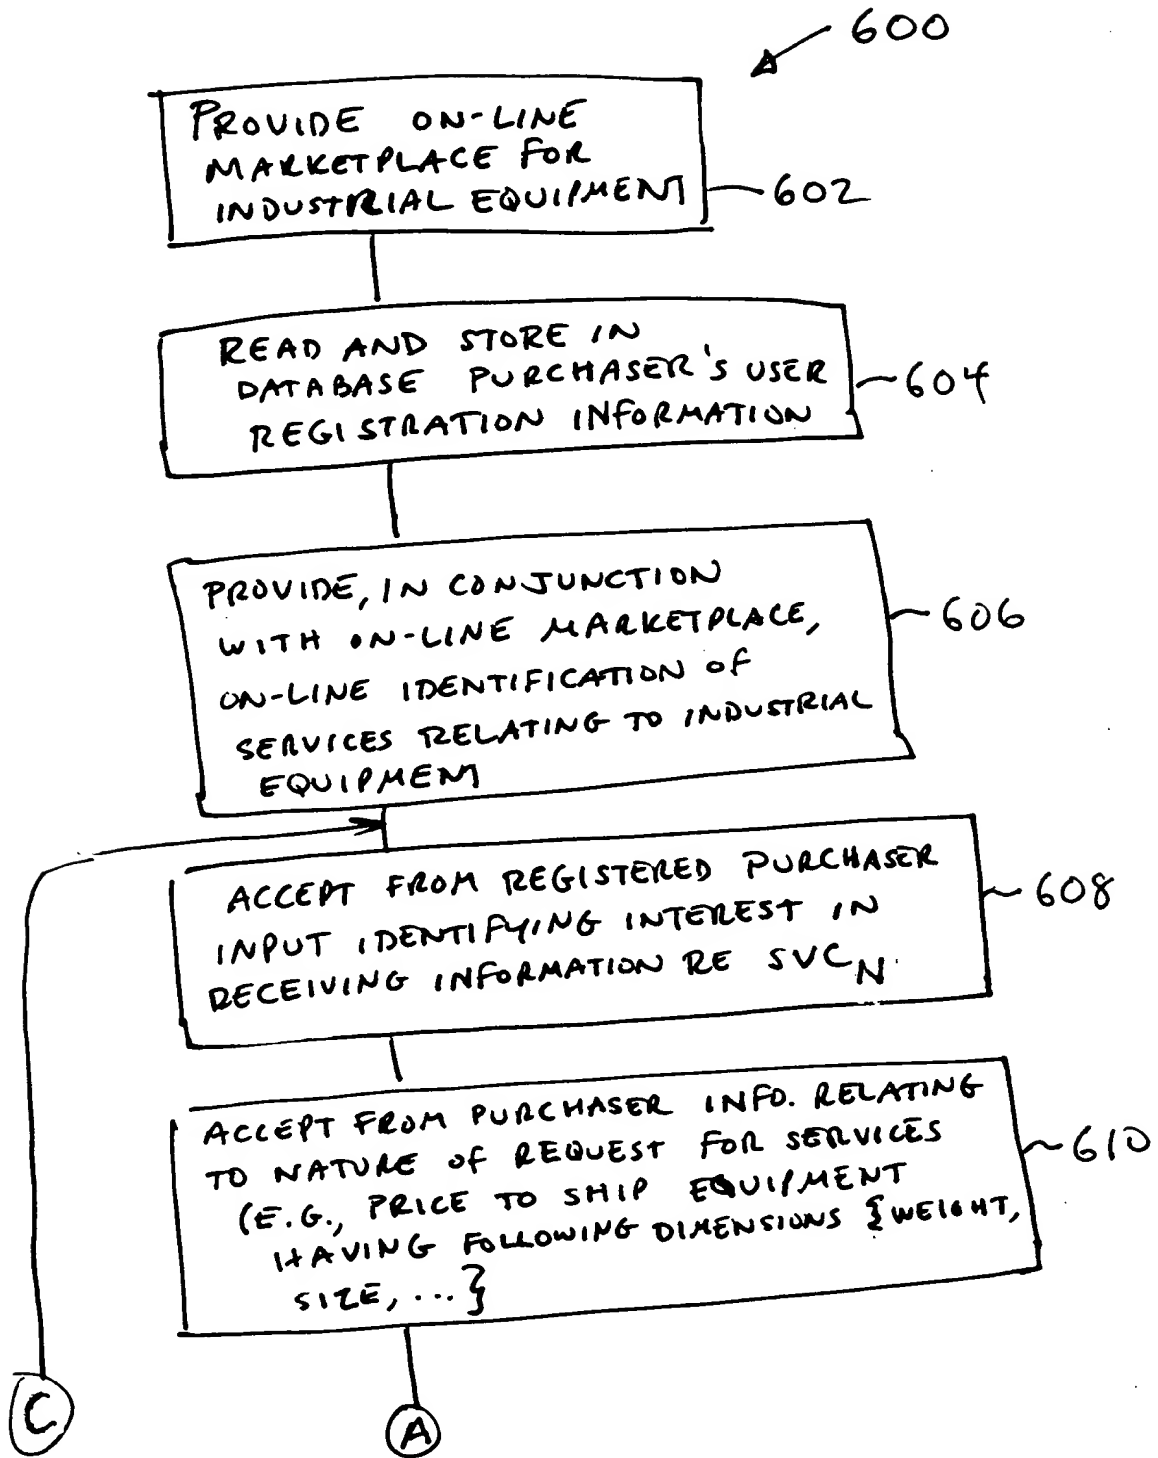 600
PROVIDE ON-LINE
MARKETPLACE FOR
INDUSTRIAL EQUIPMENT
602
READ AND STORE IN
DATABASE PURCHASER'S USER
REGISTRATION INFORMATION
604
PROVIDE, IN CONJUNCTION
WITH ON-LINE MARKETPLACE,
ON-LINE IDENTIFICATION OF
SERVICES RELATING TO INDUSTRIAL
EQUIPMENT
606
ACCEPT FROM REGISTERED PURCHASER
INPUT IDENTIFYING INTEREST IN
RECEIVING INFORMATION RE SVC_N.
608
ACCEPT FROM PURCHASER INFO. RELATING
TO NATURE OF REQUEST FOR SERVICES
(E.G., PRICE TO SHIP EQUIPMENT
HAVING FOLLOWING DIMENSIONS {WEIGHT,
SIZE, ...}
610
C
A